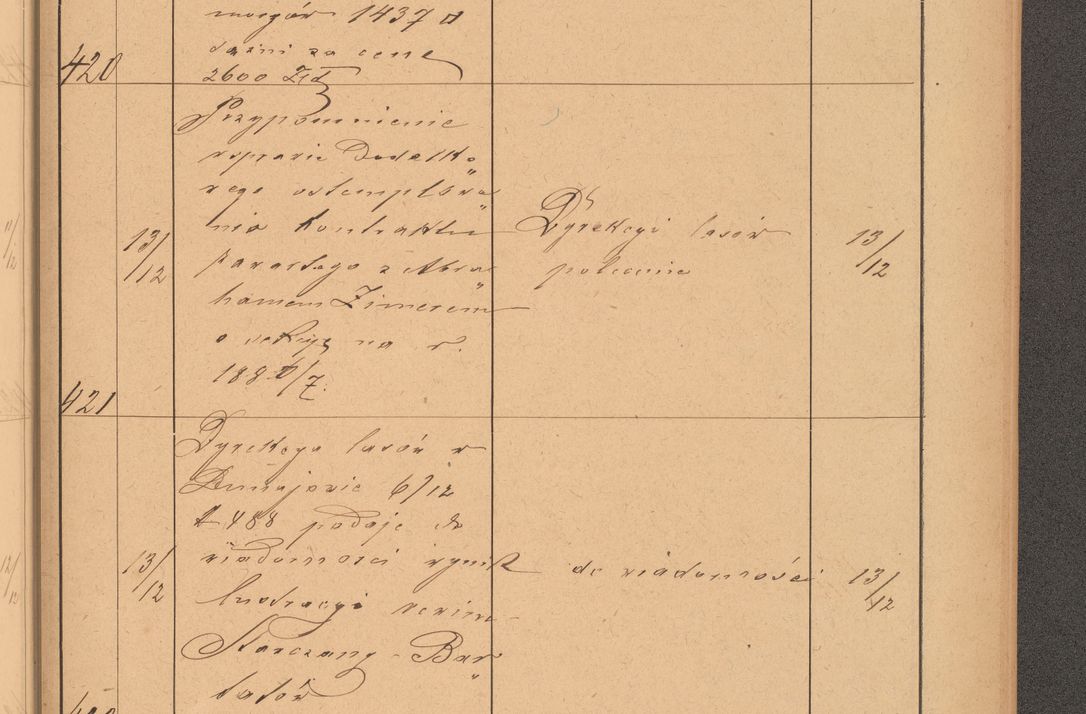 morgów 1437 □
sążni za cenę
420
2600 Złr
Przypomnienie
wsprawie Dodatko„
wego ostemplowa„
nia Kontraktu
13/12
zawartego z Abra„
hamem Zimerem
o sekcyę na r.
188 6/7.
Dyrekcyi lasów
polecenie
13/12
421
Dyrekcya lasów w
Dunajowie 6/12
L 488 podaje do
wiadomości wynik
13/12
lustracyi rewiru
Starczany - Bar„
tatów
do wiadomości
13/12